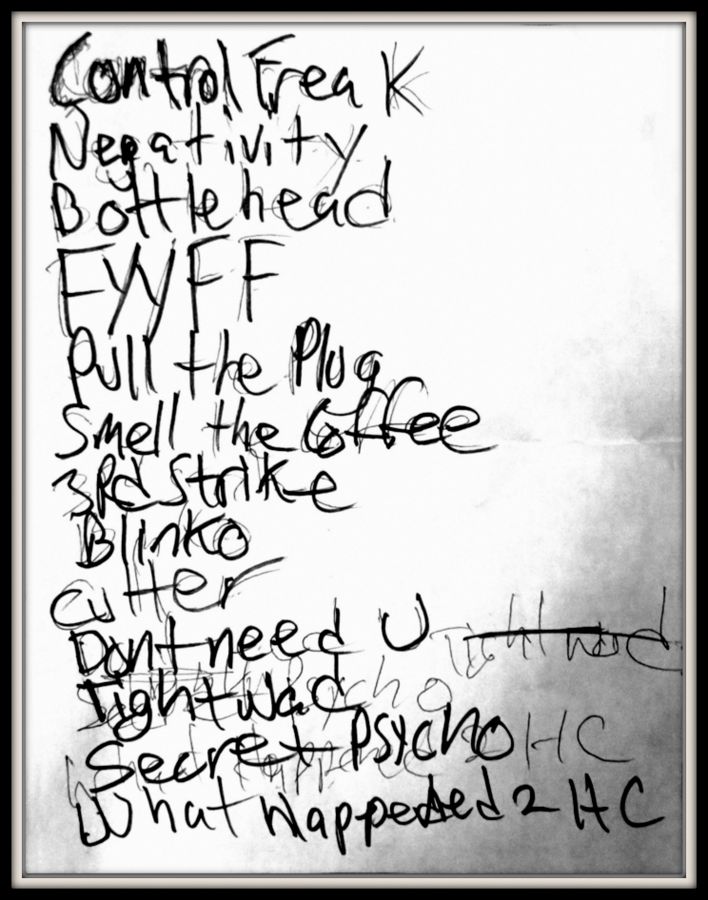 Control Freak
Negativity
Bottlehead
FWFF
Pull the Plug
Smell the Coffee
3Rd Strike
Blinko
Cutter
Dont need U Tightwad
Tightwad
Secret Psycho HC
What Happended 2 HC